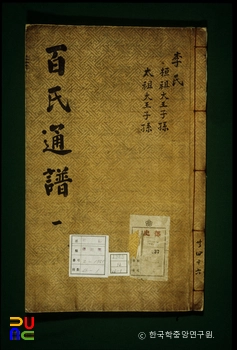 百氏通譜 一
李氏
桓祖大王子孫
太祖大王子孫
共四十六
© 한국학중앙연구원.